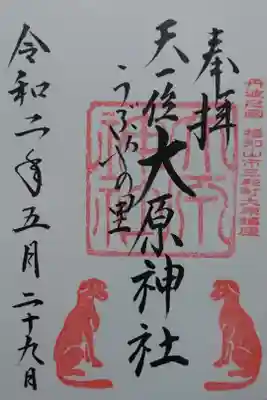 奉拝
天一位 大原神社
うぶやの里
令和二年五月二十九日